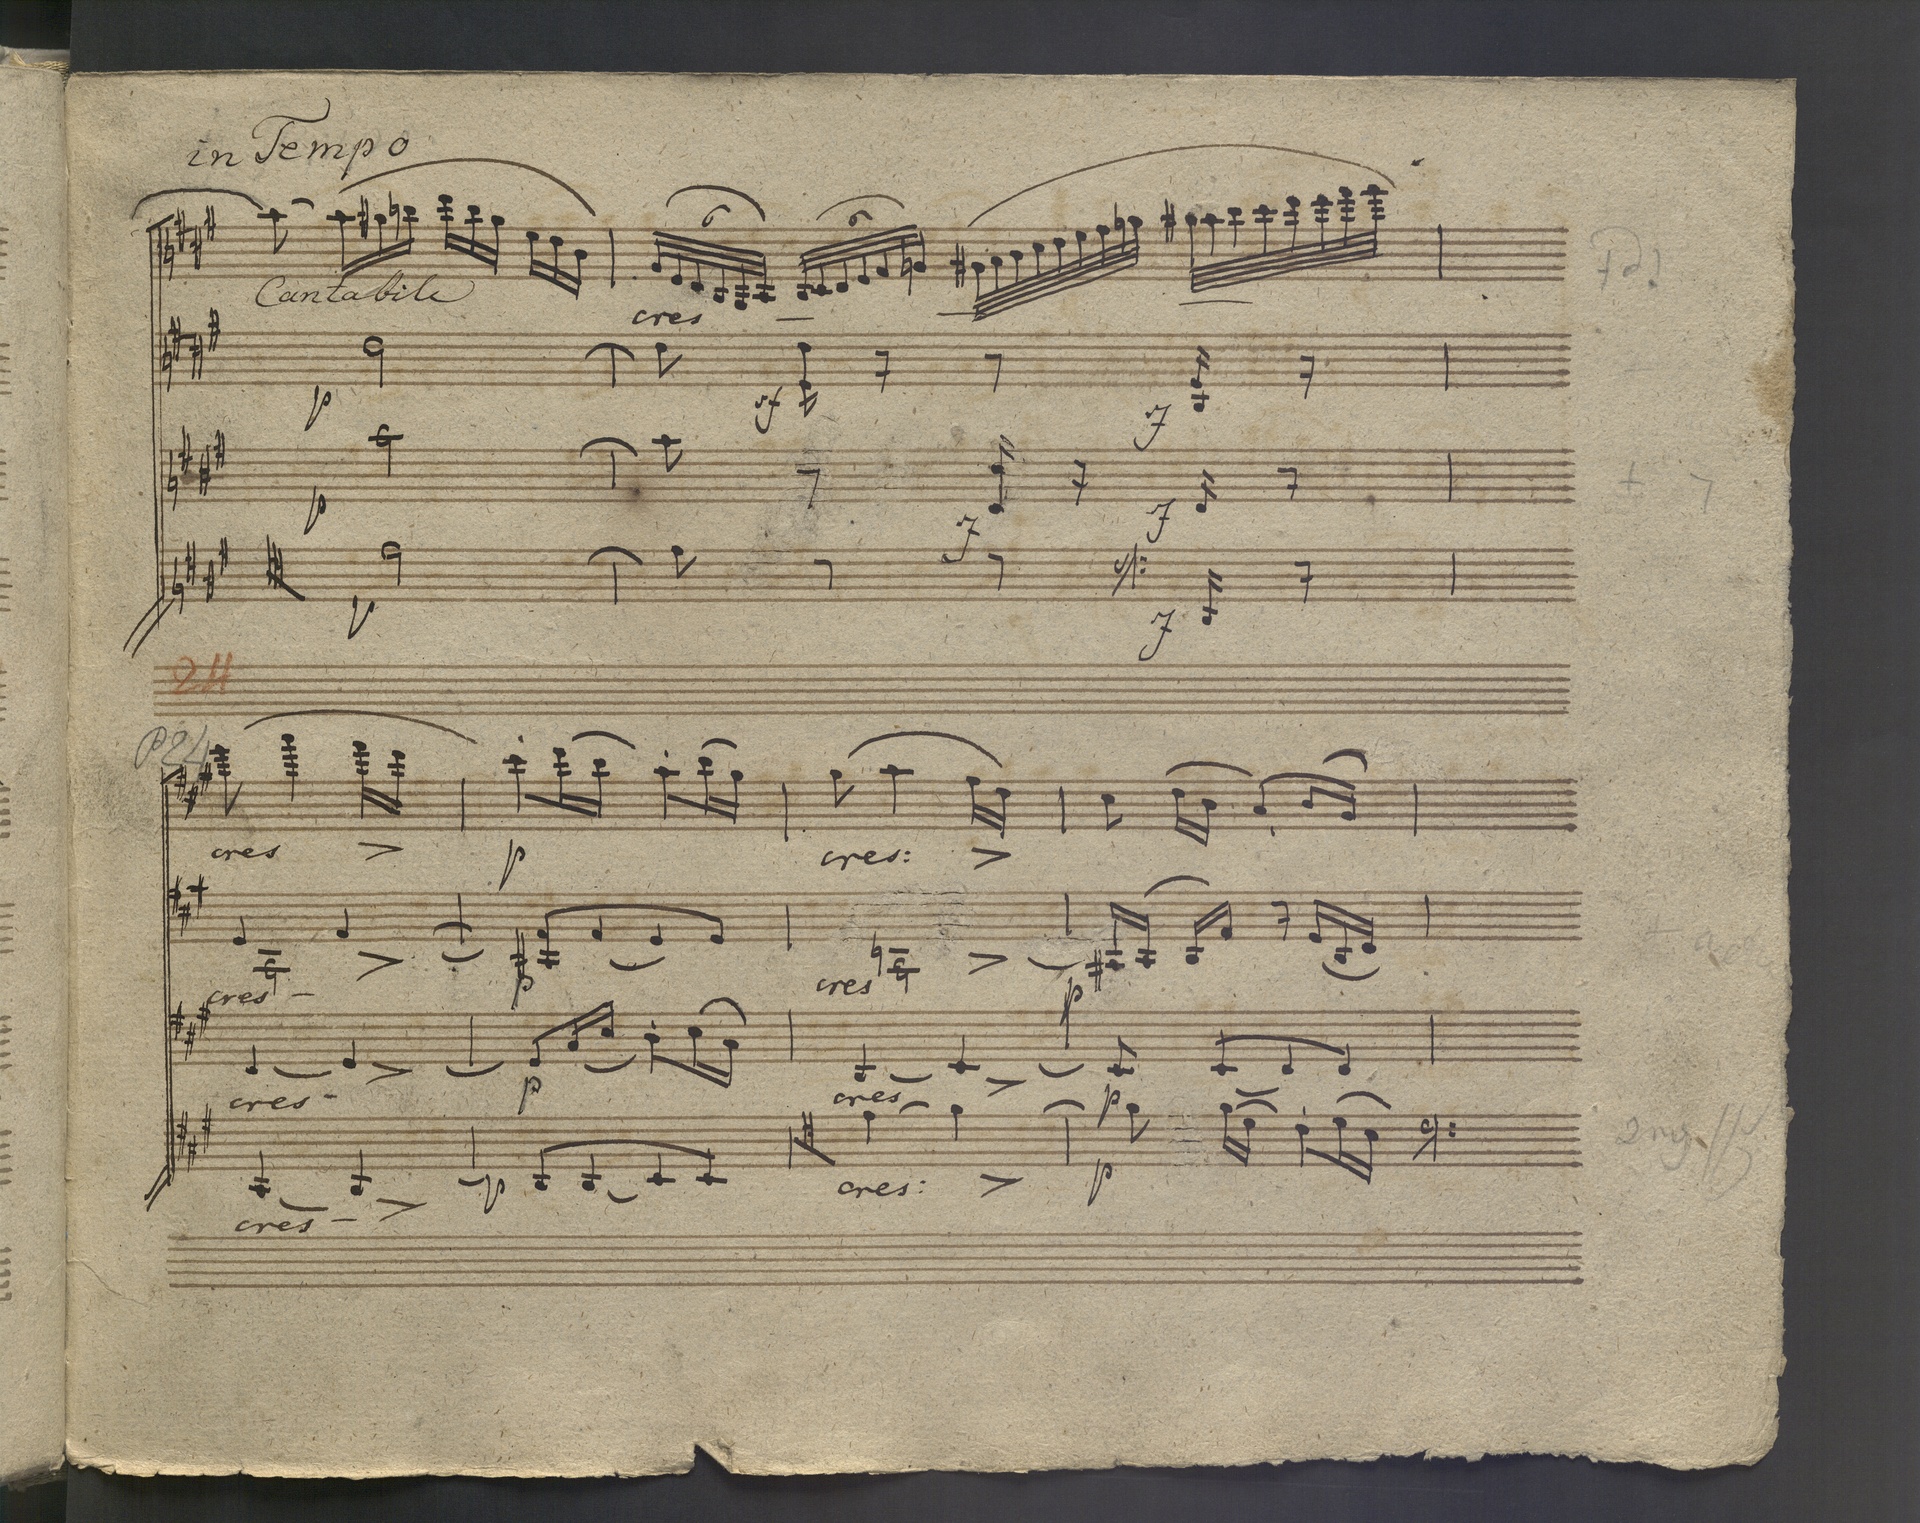 in Tempo
6 6
Cantabile
cres
p sf f
p f f
p f
24
P24
cres p cres:
cres p cres p
cres p cres p
cres p cres: p